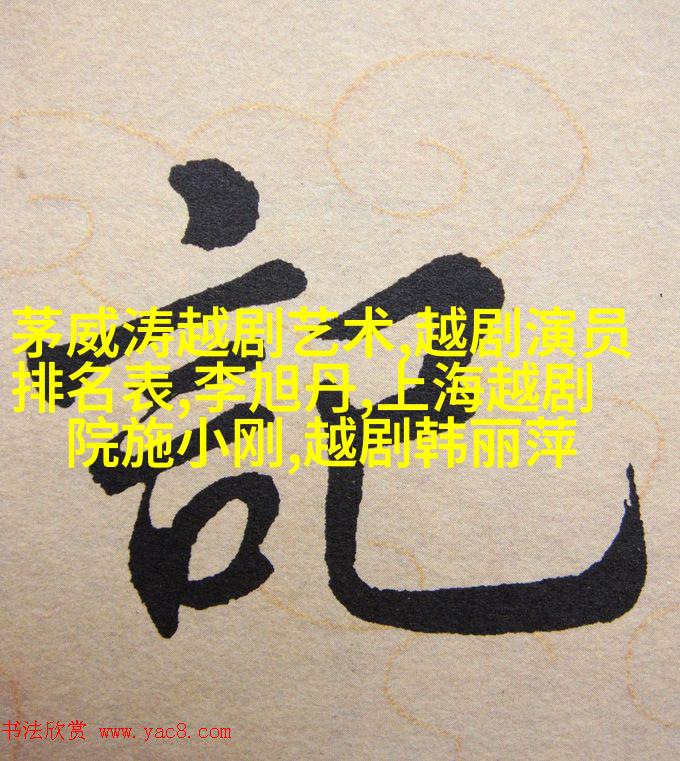 記
茅威涛越剧艺术,越剧演员
排名表,李旭丹,上海越剧
院施小刚,越剧韩丽萍
书法欣赏 www.yac8.com